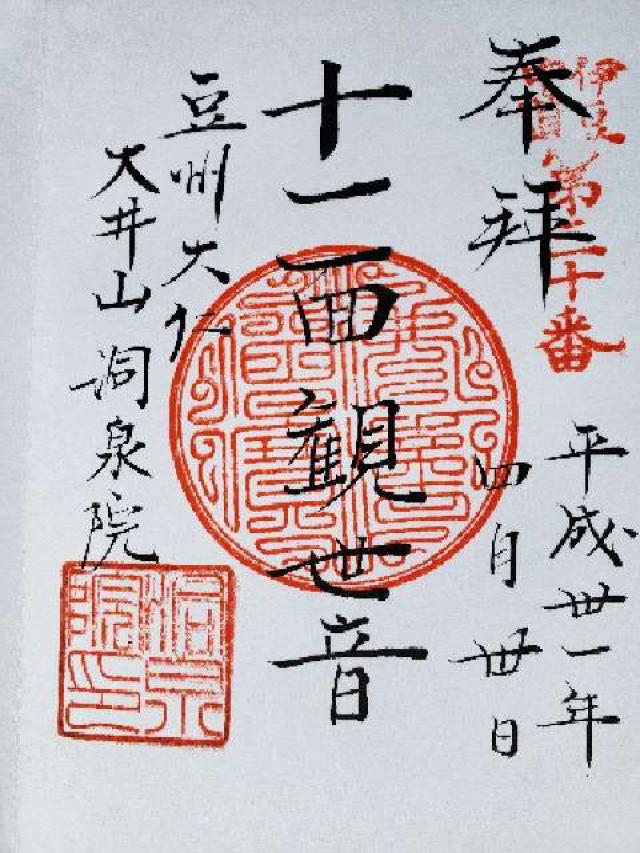 伊豆
第十番
奉拜
平成卅一年
四月卅日
十一面観世音
豆州大仁
大井山洞泉院
洞泉院印